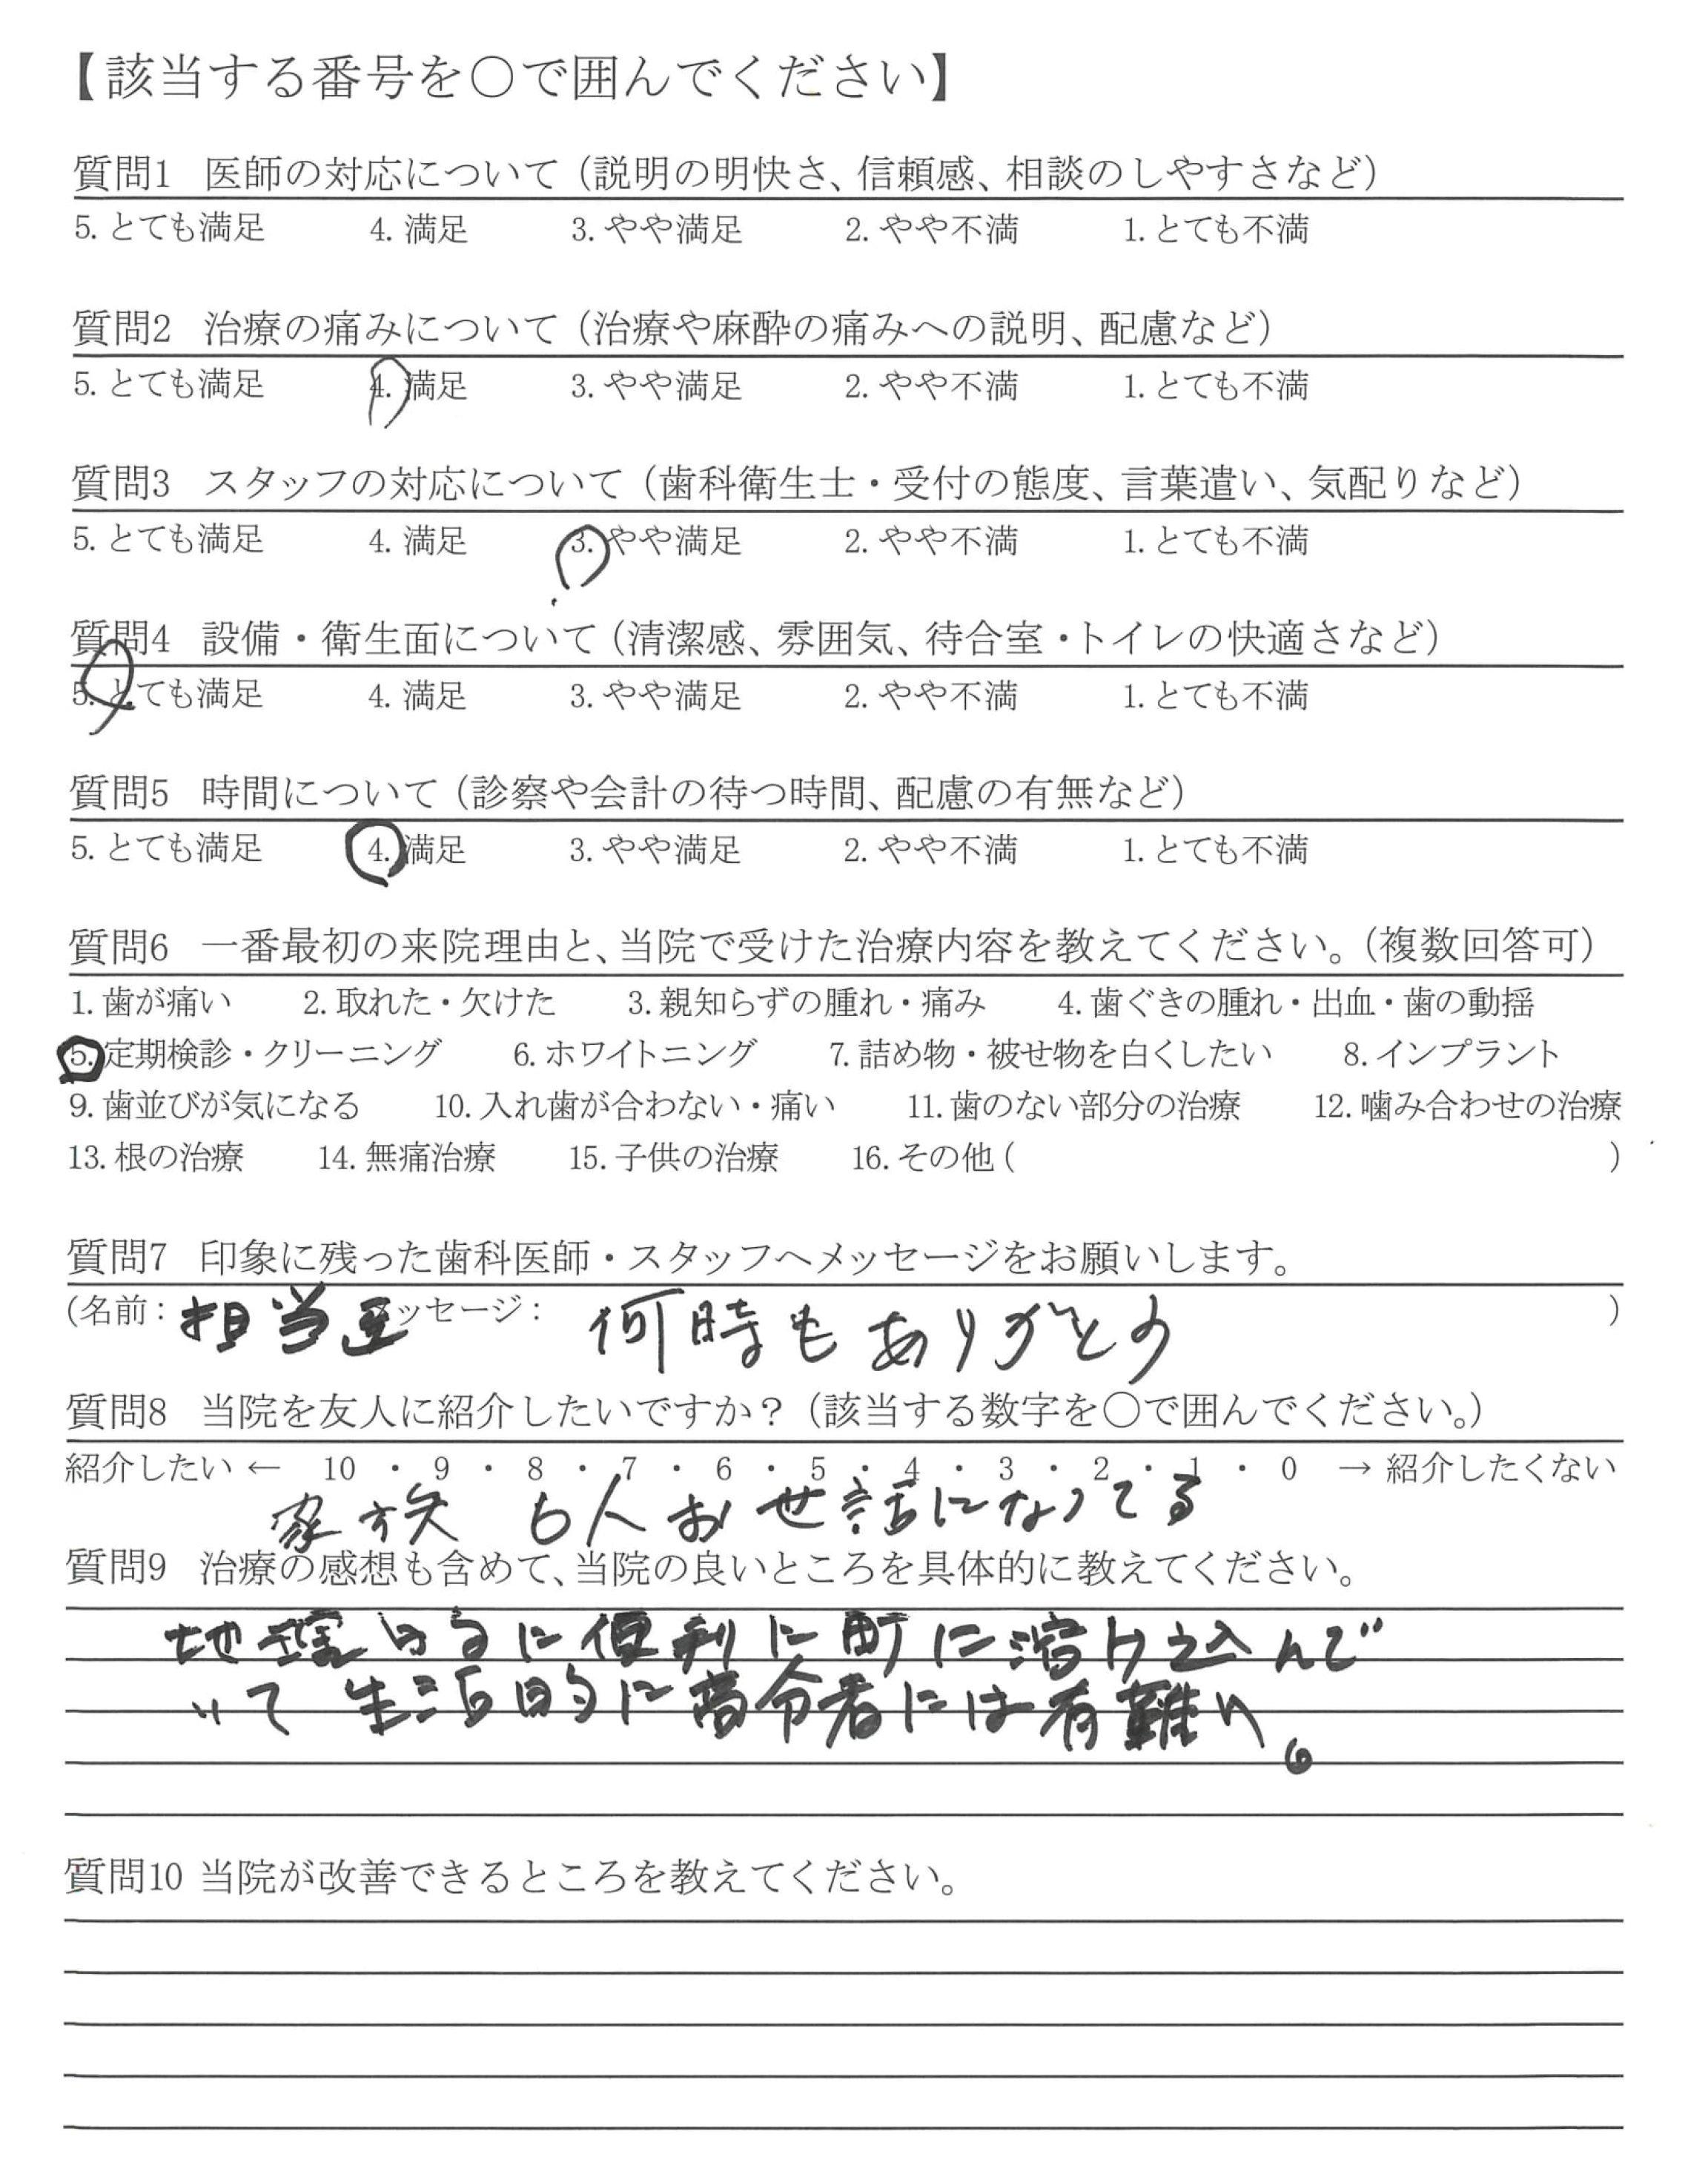 【該当する番号を○で囲んでください】
質問1 医師の対応について（説明の明快さ、信頼感、相談のしやすさなど）
5. とても満足 4. 満足 3. やや満足 2. やや不満 1. とても不満
質問2 治療の痛みについて（治療や麻酔の痛みへの説明、配慮など）
5. とても満足 4. 満足 3. やや満足 2. やや不満 1. とても不満
質問3 スタッフの対応について（歯科衛生士・受付の態度、言葉遣い、気配りなど）
5. とても満足 4. 満足 3. やや満足 2. やや不満 1. とても不満
質問4 設備・衛生面について（清潔感、雰囲気、待合室・トイレの快適さなど）
5. とても満足 4. 満足 3. やや満足 2. やや不満 1. とても不満
質問5 時間について（診察や会計の待つ時間、配慮の有無など）
5. とても満足 4. 満足 3. やや満足 2. やや不満 1. とても不満
質問6 一番最初の来院理由と、当院で受けた治療内容を教えてください。（複数回答可）
1. 歯が痛い 2. 取れた・欠けた 3. 親知らずの腫れ・痛み 4. 歯ぐきの腫れ・出血・歯の動揺
5. 定期検診・クリーニング 6. ホワイトニング 7. 詰め物・被せ物を白くしたい 8. インプラント
9. 歯並びが気になる 10. 入れ歯が合わない・痛い 11. 歯のない部分の治療 12. 噛み合わせの治療
13. 根の治療 14. 無痛治療 15. 子供の治療 16. その他（ ）
質問7 印象に残った歯科医師・スタッフへメッセージをお願いします。
（名前： 担当医 メッセージ： 何時もありがとう ）
質問8 当院を友人に紹介したいですか？（該当する数字を○で囲んでください。）
紹介したい ← 10 ・ 9 ・ 8 ・ 7 ・ 6 ・ 5 ・ 4 ・ 3 ・ 2 ・ 1 ・ 0 → 紹介したくない
家族 6人お世話になってる
質問9 治療の感想も含めて、当院の良いところを具体的に教えてください。
地理的に便利に町に溶け込んで
いて 生活的に高令者には有難い。
質問10 当院が改善できるところを教えてください。